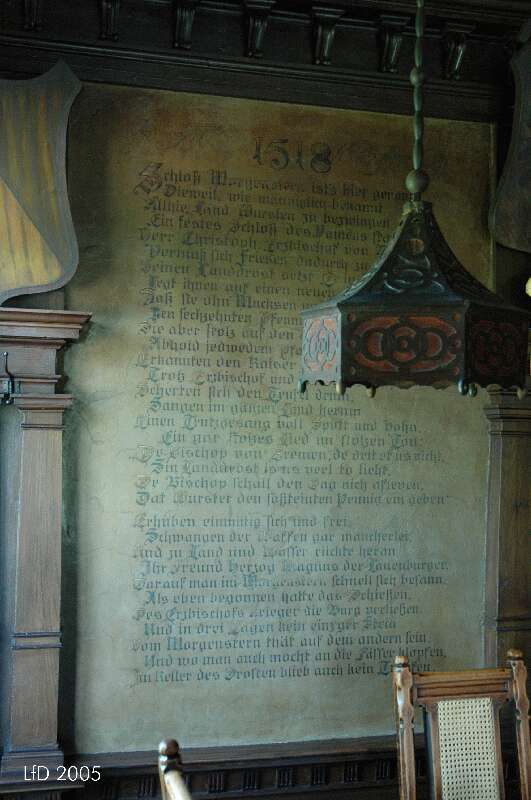 1518
Schloß Morgenstern ist's hier
Dieweil, wie männiglich bekannt
Allhie, Land Wursten zu bezwingen
Ein festes Schloß des Namens
Herr Christoph, Erzbischof von
Vermaß sich Friesen dadurch zu
Seinen Landdrost setzt
Legt ihnen auf einen neuen
Daß sie ohn Mucksen
Den sechzehnten Pfenn
Sie aber stolz auf den
Abhold jedwedem
Erkannten den Kaiser
Trotz Erzbischof und
Scherten sich den Teufel drum
Sangen im ganzen Land herum
Einen Trutzgesang voll Spott und Hohn,
Ein gar stolzes Lied im stolzen Ton:
De Bischop von Bremen, de deit et us nicht,
Sin Landdrost is us veel to licht,
De Bischop schall den Dag nich afleven,
Dat Wurster den sößteinten Pennig em geben
Erhuben einmütig sich und frei,
Schwangen der Waffen gar mancherlei;
Und zu Land und Wasser rückte heran
Ihr Freund Herzog Magnus der Lauenburger,
Darauf man im Morgenstern schnell sich besann
Als eben begonnen hatte das Schießen,
Des Erzbischofs Krieger die Burg verließen.
Und in drei Tagen kein einz'ger Stein
Vom Morgenstern thät auf dem andern sein.
Und wo man auch mocht an die Fässer klopfen,
Im Keller des Drosten blieb auch kein
LfD 2005